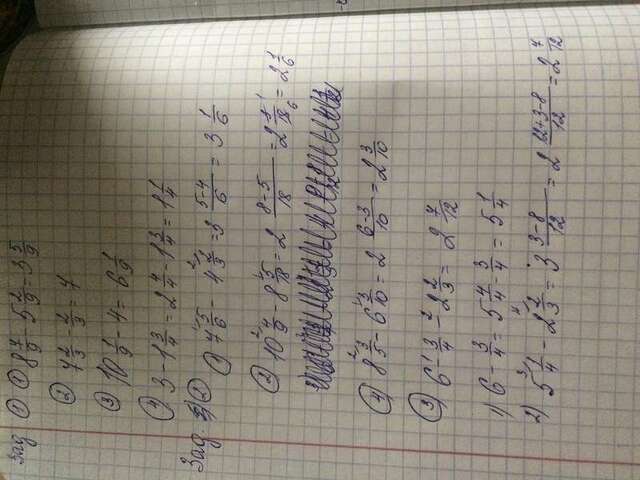 Зад ① ① 8 7/9 - 5 2/9 = 3 5/9
② 7 2/3 - 2/3 = 7
③ 10 1/9 - 4 = 6 1/9
④ 3 - 1 3/4 = 2 4/4 - 1 3/4 = 1 1/4
Зад. ② ① 7 5/6 - 4 2/3 = 3 (5-4)/6 = 3 1/6
② 10 4/9 - 8 5/18 = 2 (8-5)/18 = 2 3/18 = 2 1/6
④ 8 3/5 - 6 3/10 = 2 (6-3)/10 = 2 3/10
③ 6 - 3/4 - 2 2/3 = 2 7/12
1) 6 - 3/4 = 5 4/4 - 3/4 = 5 1/4
2) 5 1/4 - 2 2/3 = 3 (3-8)/12 = 2 (12+3-8)/12 = 2 7/12